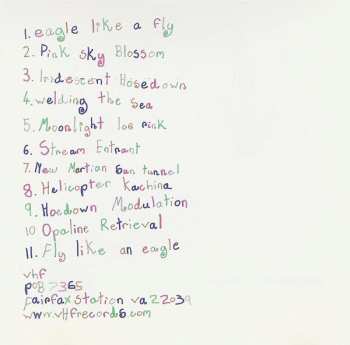 1. eagle like a fly
2. Pink sky Blossom
3. Iridescent Hosedown
4. welding the sea
5. Moonlight ice pink
6. Stream Entrant
7. New Martian Sun tunnel
8. Helicopter Kachina
9. Hoedown Modulation
10 Opaline Retrieval
11. Fly like an eagle
vhf
pob 7365
fairfax station va 22039
www.vHfrecords.com